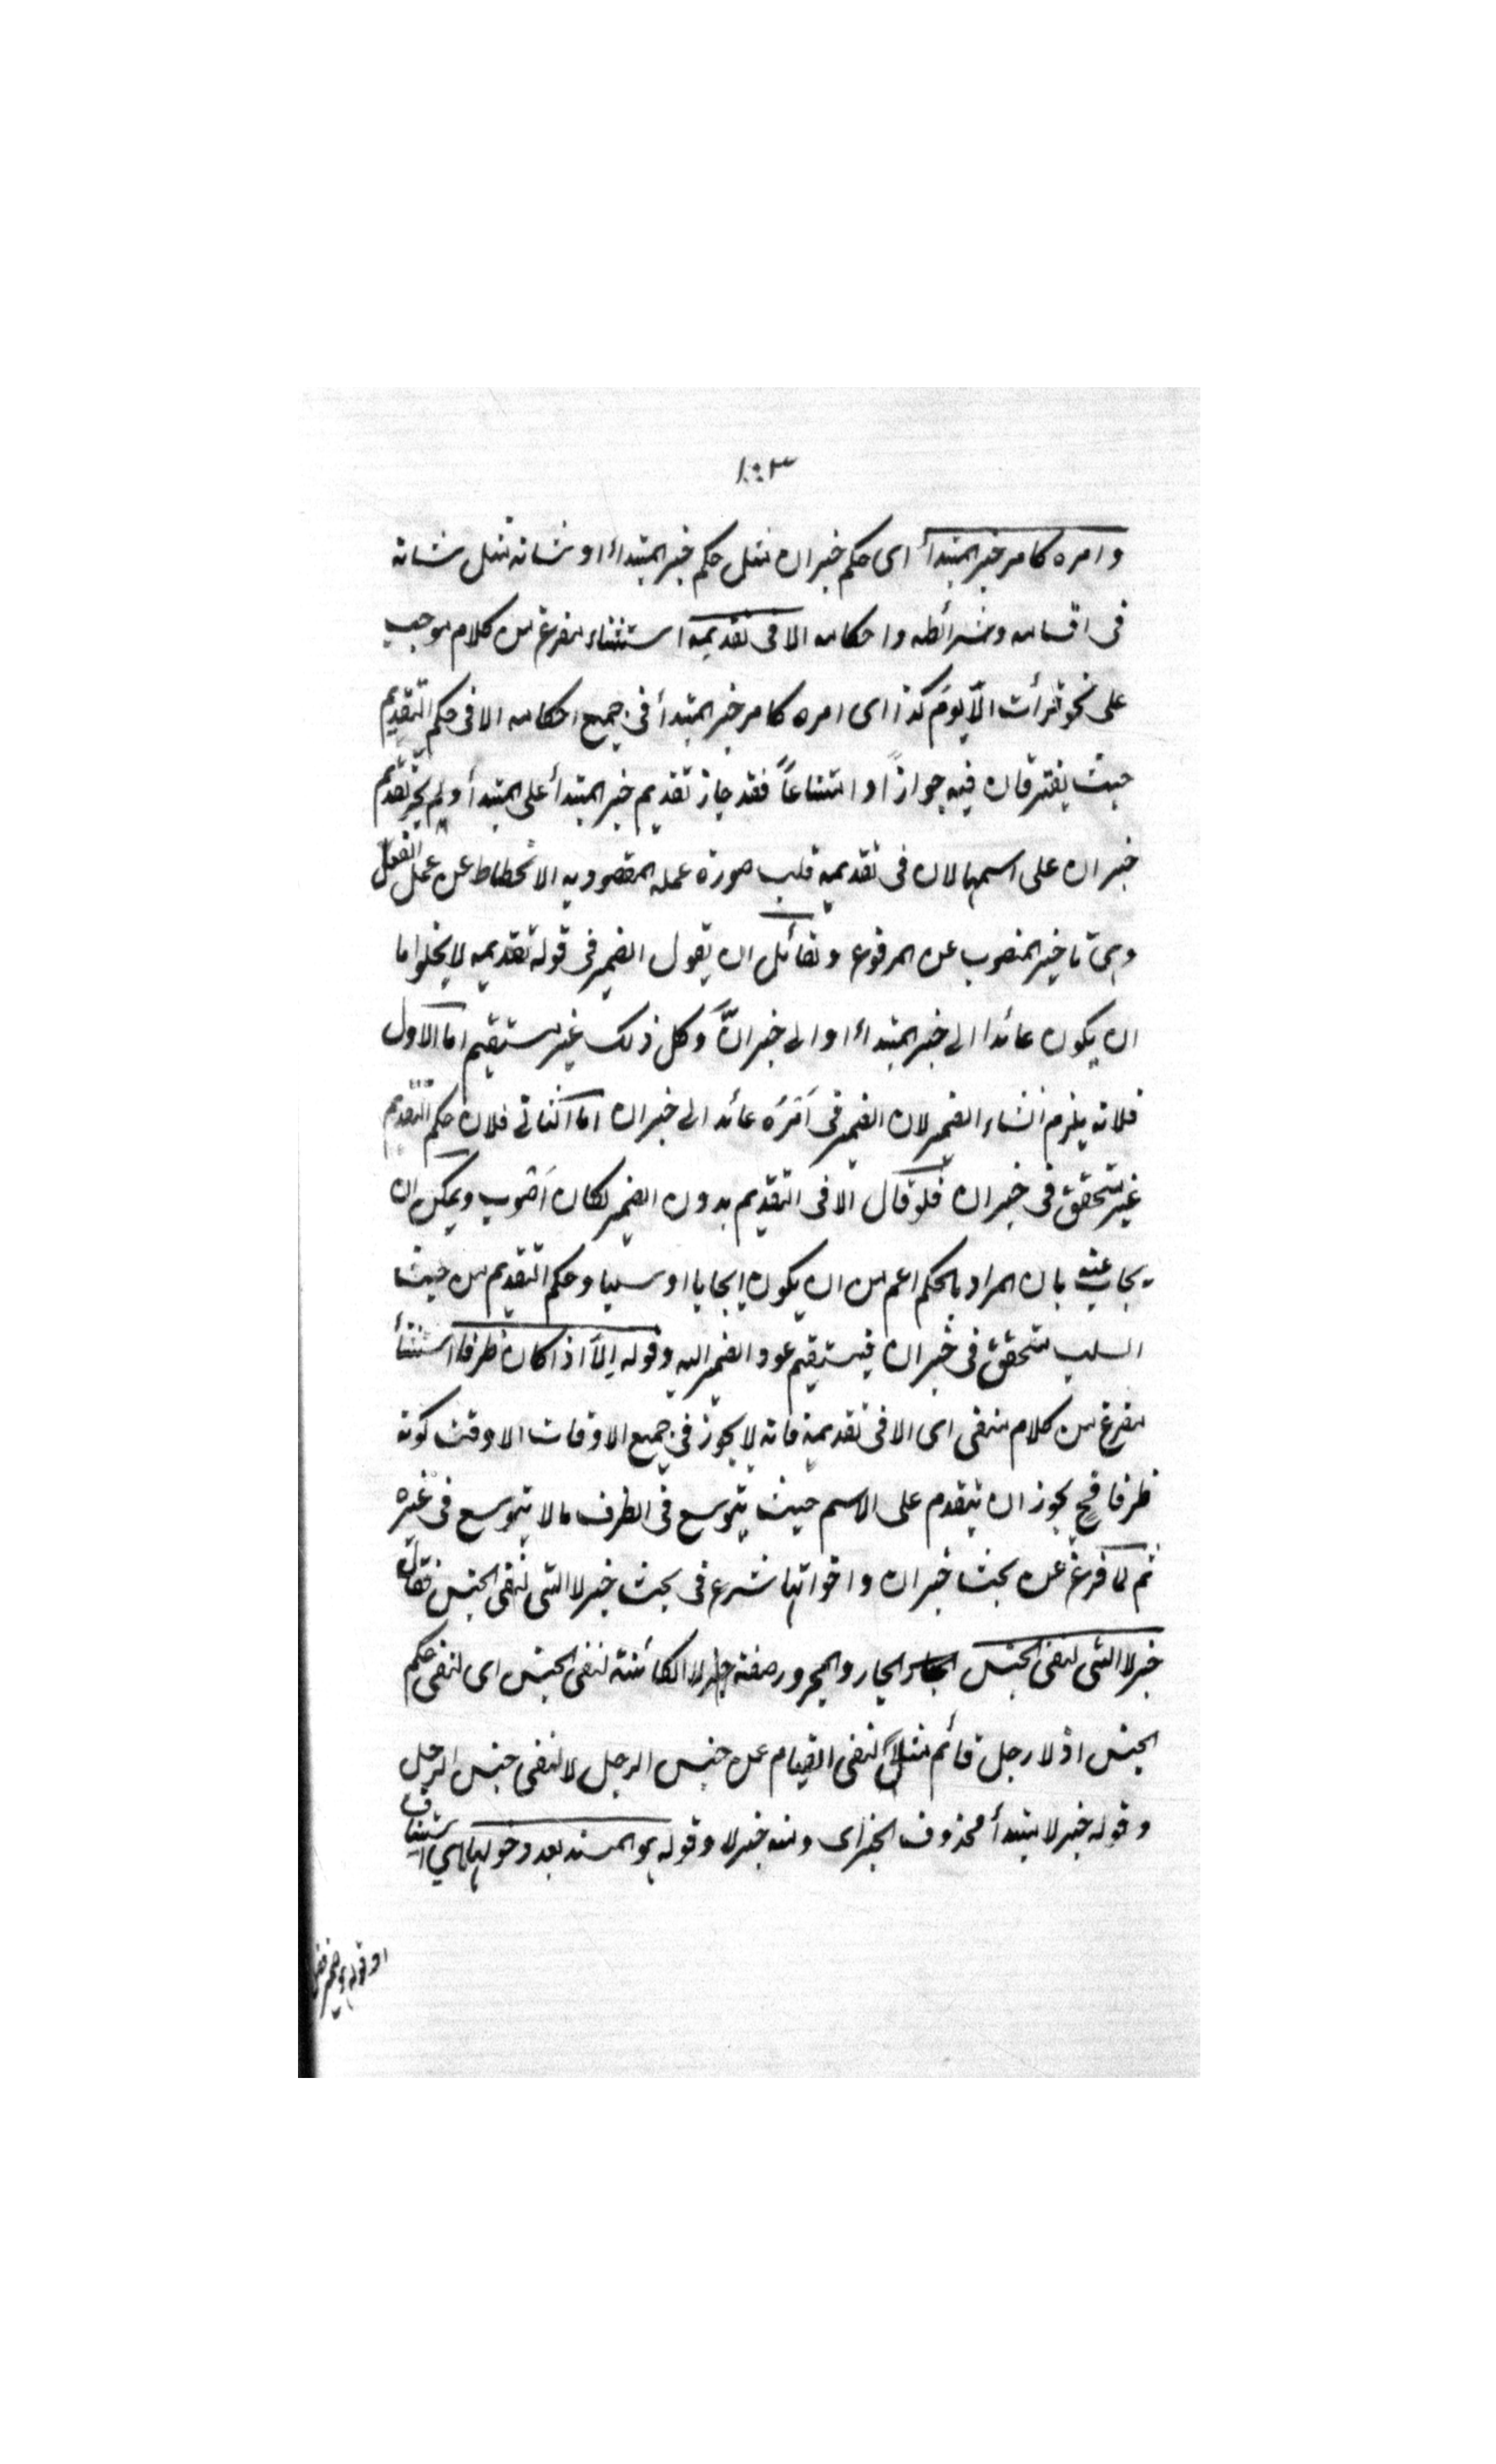 ١٠٣
وامره كامر خبر المبتدأ اى حكم خبر ان مثل حكم خبر المبتداء او شانه مثل شانه
فى اقسامه وشرائطه واحكامه الا فى تقديمه استثناء مفرغ من كلام موجب
على نحو قرأت الّا يومَ كذا اى امره كامر خبر المبتدأ فى جميع احكامه الا فى حكم التقديم
حيث يفترقان فيه جوازاً او امتناعاً فقد جاز تقديم خبر المبتدأ على المبتدأ ولم يجز تقديم
خبر ان على اسمها لان فى تقديمه قلب صورة عمله المقصود به الانحطاط عن عمل الفعل
وهى تاخير المنصوب عن المرفوع ولقائل ان يقول الضمير فى قوله تقديمه لا يخلوا ما
ان يكون عائدا الى خبر المبتداء او الى خبر انَّ وكل ذلك غير مستقيم اما الاول
فلانه يلزم انتشار الضمير لان الضمير فى اَمْرُه عائد الى خبر ان اما الثانى فلان حكم التقديم
غير متحقق فى خبر ان فلو قال الا فى التقديم بدون الضمير لكان اَصْوب ويمكن ان
يجاب عنه بان المراد بالحكم اعم من ان يكون ايجابا او سلبا وحكم التقديم من حيث
السلب متحقق فى خبر ان فيستقيم عود الضمير اليه وقوله اِلّا اذا كان ظرفا استثناء
مفرغ من كلام منفى اى الا فى تقديمه فانه لا يجوز فى جميع الاوقات الا وقت كونه
ظرفا فح يجوز ان يتقدم على الاسم حيث يتوسع فى الظرف ما لا يتوسع فى غيره
ثم لما فرغ عن بحث خبر ان واخواتها شرع فى بحث خبر لا التى لنفى الجنس فقال
خبر لا التى لنفى الجنس الجار والمجرور صفة لا الكائنة لنفى الجنس اى لنفى حكم
الجنس اذ لا رجل قائم مثلاً لنفى القيام عن جنس الرجل لا لنفى جنس الرجل
وقوله خبر لا مبتدأ محذوف الخبر اى ومنه خبر لا وقوله هو المسند بعد دخولها استيناف
او قوله هو ضمير فصل